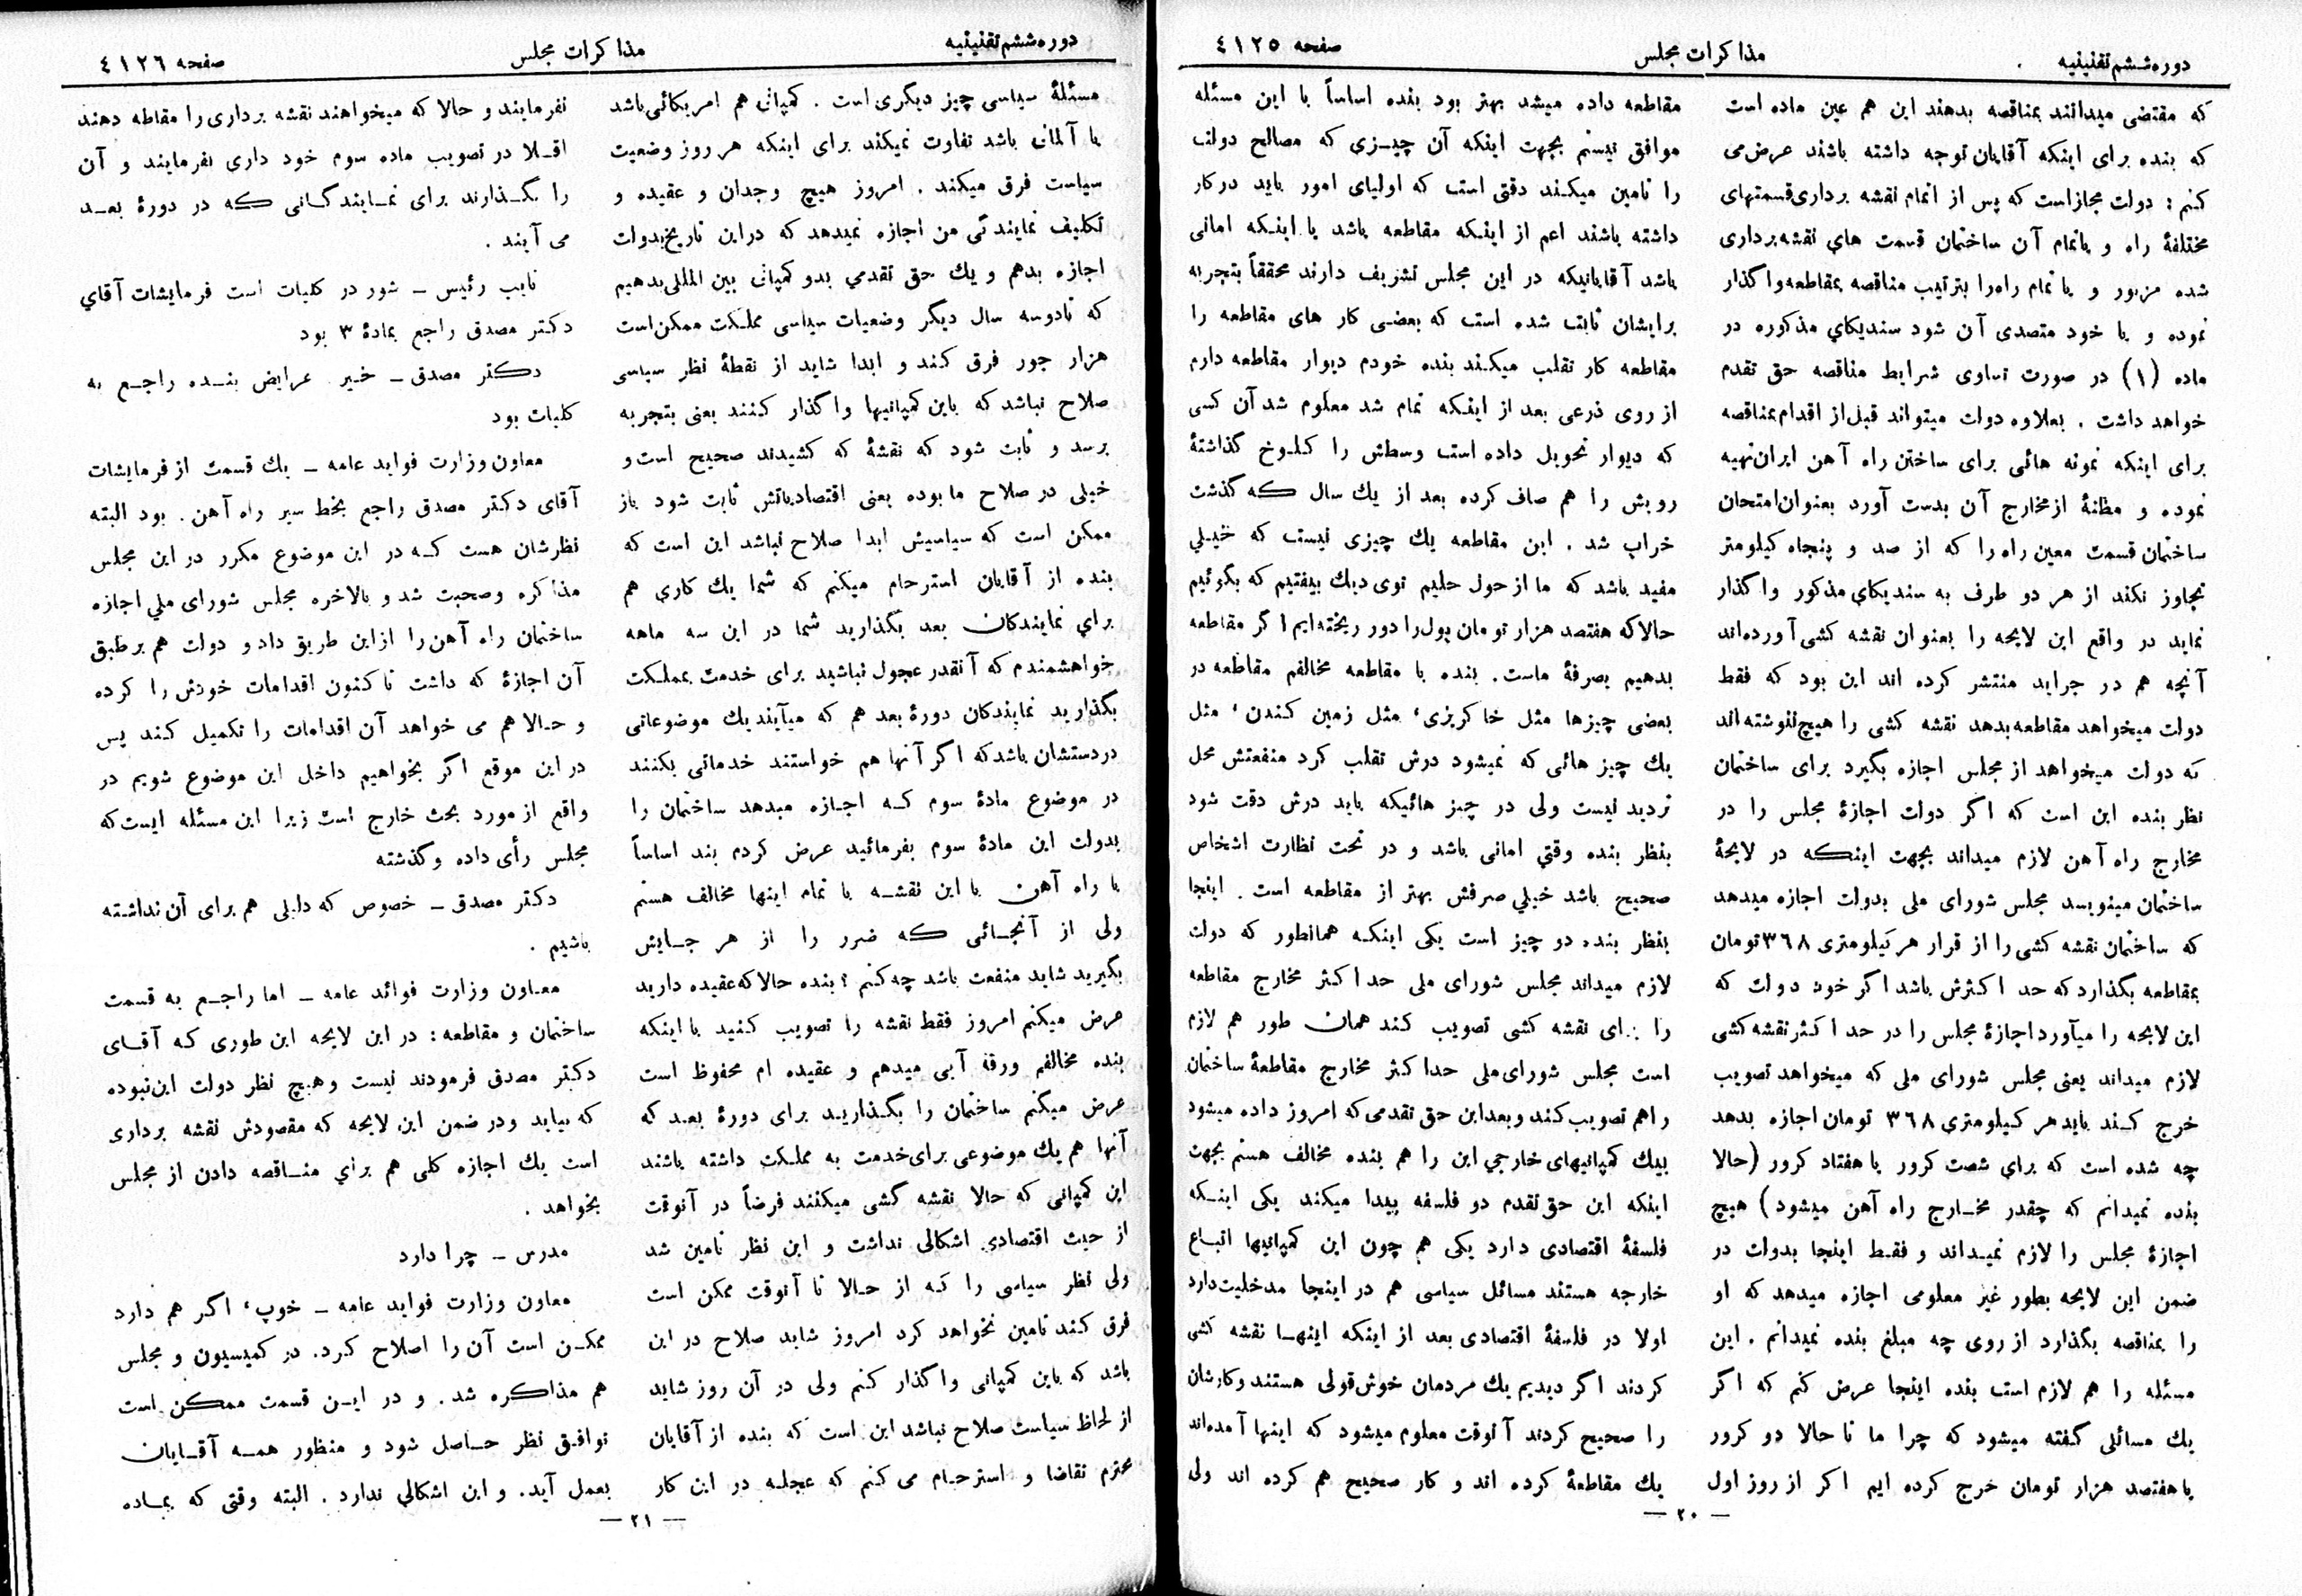 دوره ششم تقنینیه
مذاکرات مجلس
صفحه ٤١٢٥
که مقتضی میدانند بمناقصه بدهند این هم عین ماده است
که بنده برای اینکه آقایان توجه داشته باشند عرض می
کنم : دولت مجاز است که پس از اتمام نقشه برداری قسمتهای
مختلفهٔ راه و یا تمام آن ساختمان قسمت هاي نقشه برداری
شده مزبور و یا تمام راه را بترتیب مناقصه بمقاطعه واگذار
نموده و یا خود متصدی آن شود سندیکاي مذکوره در
ماده (١) در صورت تساوی شرایط مناقصه حق تقدم
خواهد داشت . بعلاوه دولت میتواند قبل از اقدام بمناقصه
برای اینکه نمونه هائی برای ساختن راه آهن ایران تهیه
نموده و مظنهٔ از مخارج آن بدست آورد بعنوان امتحان
ساختمان قسمت معین راه را که از صد و پنجاه کیلومتر
تجاوز نکند از هر دو طرف به سندیکاي مذکور واگذار
نماید در واقع این لایحه را بعنوان نقشه کشی آورده‌اند
آنچه هم در جراید منتشر کرده اند این بود که فقط
دولت میخواهد مقاطعه بدهد نقشه کشی را هیچ ننوشته‌اند
که دولت میخواهد از مجلس اجازه بگیرد برای ساختمان
نظر بنده این است که اگر دولت اجازهٔ مجلس را در
مخارج راه آهن لازم میداند بجهت اینکه در لایحهٔ
ساختمان مینویسد مجلس شورای ملی بدولت اجازه میدهد
که ساختمان نقشه کشی را از قرار هر کیلومتری ٣٦٨ تومان
بمقاطعه بگذارد که حد اکثرش باشد اگر خود دولت که
این لایحه را میآورد اجازهٔ مجلس را در حد اکثر نقشه کشی
لازم میداند یعنی مجلس شورای ملی که میخواهد تصویب
خرج کند باید هر کیلومتری ٣٦٨ تومان اجازه بدهد
چه شده است که براي شصت کرور یا هفتاد کرور (حالا
بنده نمیدانم که چقدر مخارج راه آهن میشود) هیچ
اجازهٔ مجلس را لازم نمیداند و فقط اینجا بدولت در
ضمن این لایحه بطور غیر معلومی اجازه میدهد که او
را بمناقصه بگذارد از روی چه مبلغ بنده نمیدانم . این
مسئله را هم لازم است بنده اینجا عرض کنم که اگر
یك مسائلی گفته میشود که چرا ما تا حالا دو کرور
یا هفتصد هزار تومان خرج کرده ایم اکر از روز اول
مقاطعه داده میشد بهتر بود بنده اساساً با این مسئله
موافق نیستم بجهت اینکه آن چیزی که مصالح دولت
را تامین میکند دقتی است که اولیای امور باید درکار
داشته باشند اعم از اینکه مقاطعه باشد یا اینکه امانی
باشد آقایانیکه در این مجلس تشریف دارند محققاً بتجربه
برایشان ثابت شده است که بعضی کار های مقاطعه را
مقاطعه کار تقلب میکند بنده خودم دیوار مقاطعه دارم
از روی ذرعی بعد از اینکه تمام شد معلوم شد آن کسی
که دیوار تحویل داده است وسطش را کلوخ گذاشتهٔ
رویش را هم صاف کرده بعد از یك سال که گذشت
خراب شد . این مقاطعه یك چیزی نیست که خیلي
مفید باشد که ما از حول حلیم توی دیك بیفتیم که بگوئیم
حالا که هفتصد هزار تومان پول را دور ریخته‌ایم اگر مقاطعه
بدهیم بصرفهٔ ماست . بنده با مقاطعه مخالفم مقاطعه در
بعضی چیزها مثل خاکریزی، مثل زمین کندن، مثل
یك چیز هائی که نمیشود درش تقلب کرد منفعتش محل
تردید نیست ولی در چیز هائیکه باید درش دقت شود
بنظر بنده وقتي امانی باشد و در تحت نظارت اشخاص
صحیح باشد خیلي صرفش بهتر از مقاطعه است . اینجا
بنظر بنده دو چیز است یکی اینکه همانطور که دولت
لازم میداند مجلس شورای ملی حد اکثر مخارج مقاطعه
را برای نقشه کشی تصویب کند همان طور هم لازم
است مجلس شورای ملی حد اکثر مخارج مقاطعهٔ ساختمان
را هم تصویب کند و بعد این حق تقدمی که امروز داده میشود
بیك کمپانیهای خارجي این را هم بنده مخالف هستم بجهت
اینکه این حق تقدم دو فلسفه پیدا میکند یکی اینکه
فلسفهٔ اقتصادی دارد یکی هم چون این کمپانیها اتباع
خارجه هستند مسائل سیاسی هم در اینجا مدخلیت دارد
اولا در فلسفهٔ اقتصادی بعد از اینکه اینها نقشه کشی
کردند اگر دیدیم یك مردمان خوش قولی هستند و کارشان
را صحیح کردند آنوقت معلوم میشود که اینها آمده‌اند
یك مقاطعهٔ کرده اند و کار صحیح هم کرده اند ولی
— ٢٠ —
دوره ششم تقنینیه
مذاکرات مجلس
صفحه ٤١٢٦
مسئلهٔ سیاسی چیز دیگری است . کمپانی هم امریکائی باشد
یا آلمانی باشد تفاوت نمیکند برای اینکه هر روز وضعیت
سیاست فرق میکند . امروز هیچ وجدان و عقیده و
تکلیف نمایندگی من اجازه نمیدهد که در این تاریخ بدولت
اجازه بدهم و یك حق تقدمي بدو کمپانی بین المللی بدهیم
که تا دو سه سال دیگر وضعیات سیاسی مملکت ممکن است
هزار جور فرق کند و ابدا شاید از نقطهٔ نظر سیاسی
صلاح نباشد که باین کمپانیها واگذار کنند یعنی بتجربه
برسد و ثابت شود که نقشهٔ که کشیدند صحیح است و
خیلی در صلاح ما بوده یعنی اقتصادیاتش ثابت شود باز
ممکن است که سیاسیش ابدا صلاح نباشد این است که
بنده از آقایان استرحام میکنم که شما یك کاری هم
براي نمایندکان بعد بگذارید شما در این سه ماهه
خواهشمندم که آنقدر عجول نباشید برای خدمت بمملکت
بگذارید نمایندکان دورهٔ بعد هم که میآیند یك موضوعاتی
در دستشان باشد که اگر آنها هم خواستند خدماتی بکنند
در موضوع مادهٔ سوم که اجازه میدهد ساختمان را
بدولت این مادهٔ سوم بفرمائید عرض کردم بند اساساً
با راه آهن با این نقشه با تمام اینها مخالف هستم
ولی از آنجائی که ضرر را از هر جایش
بگیرید شاید منفعت باشد چه کنم ؟ بنده حالا که عقیده دارید
عرض میکنم امروز فقط نقشه را تصویب کنید با اینکه
بنده مخالفم ورقهٔ آبی میدهم و عقیده ام محفوظ است
عرض میکنم ساختمان را بگذارید برای دورهٔ بعد که
آنها هم یك موضوعی برای خدمت به مملکت داشته باشند
این کمپانی که حالا نقشه کشی میکنند فرضاً در آنوقت
از حیث اقتصادی اشکالی نداشت و این نظر تامین شد
ولی نظر سیاسی را که از حالا تا آنوقت ممکن است
فرق کند تامین نخواهد کرد امروز شاید صلاح در این
باشد که باین کمپانی واگذار کنم ولی در آن روز شاید
از لحاظ سیاست صلاح نباشد این است که بنده از آقایان
محترم تقاضا و استرحام می کنم که عجله در این کار
نفرمایند و حالا که میخواهند نقشه برداری را مقاطه دهند
اقلا در تصویب ماده سوم خود داری نفرمایند و آن
را بگذارند برای نمایندگانی که در دورهٔ بعد
می آیند .
نایب رئیس ـ شور در کلیات است فرمایشات آقاي
دکتر مصدق راجع بمادهٔ ٣ بود
دکتر مصدق ـ خیر عرایض بنده راجع به
کلیات بود
معاون وزارت فواید عامه ـ یك قسمت از فرمایشات
آقای دکتر مصدق راجع بخط سیر راه آهن . بود البته
نظرشان هست که در این موضوع مکرر در این مجلس
مذاکره و صحبت شد و بالاخره مجلس شورای ملي اجازه
ساختمان راه آهن را از این طریق داد و دولت هم بر طبق
آن اجازهٔ که داشت تا کنون اقدامات خودش را کرده
و حالا هم می خواهد آن اقدامات را تکمیل کند پس
در این موقع اگر بخواهیم داخل این موضوع شویم در
واقع از مورد بحث خارج است زیرا این مسئله ایست که
مجلس رأی داده و گذشته
دکتر مصدق ـ خصوص که دلیلی هم برای آن نداشته
باشیم .
معاون وزارت فوائد عامه ـ اما راجع به قسمت
ساختمان و مقاطعه : در این لایحه این طوری که آقای
دکتر مصدق فرمودند نیست و هیچ نظر دولت این نبوده
که بیاید و در ضمن این لایحه که مقصودش نقشه برداری
است یك اجازه کلی هم براي مناقصه دادن از مجلس
بخواهد .
مدرس ـ چرا دارد
معاون وزارت فواید عامه ـ خوب، اگر هم دارد
ممکن است آن را اصلاح کرد . در کمیسیون و مجلس
هم مذاکره شد . و در این قسمت ممکن است
توافق نظر حاصل شود و منظور همه آقایان
بعمل آید . و این اشکالي ندارد . البته وقتی که بماده
— ٢١ —